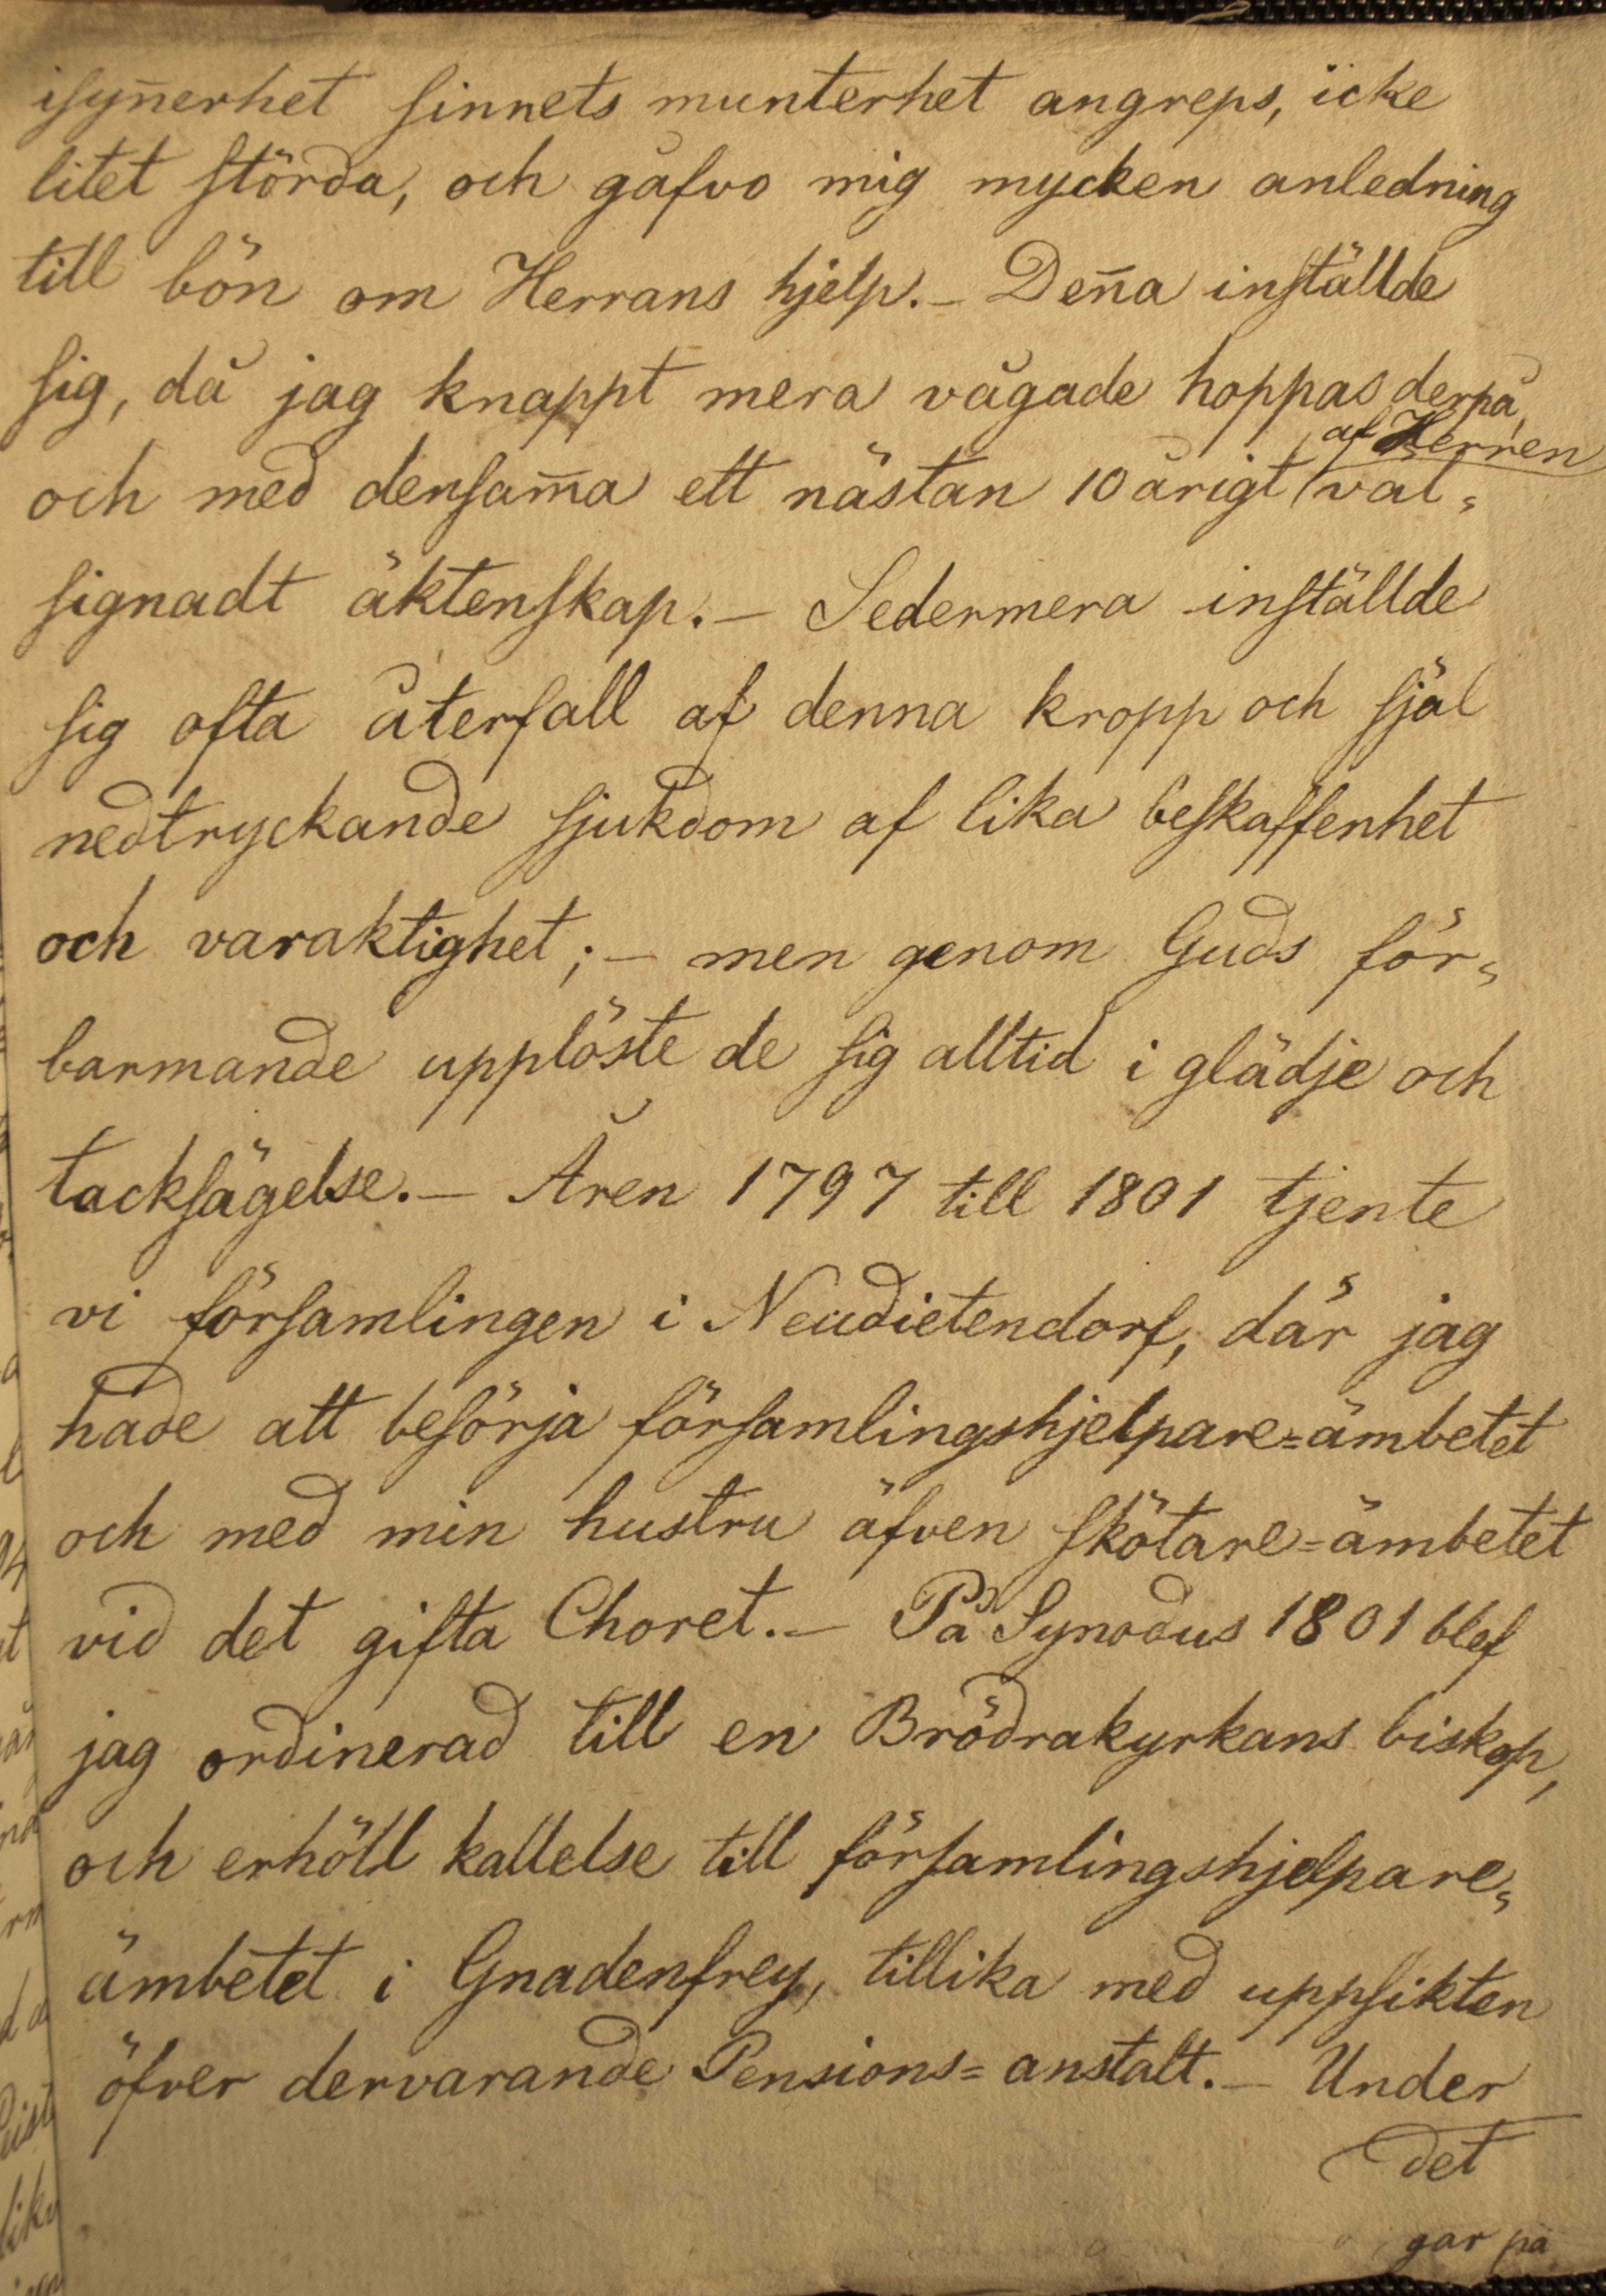 isyn̄erhet sinnets munterhet angreps, icke
litet störda, och gåfvo mig mycken anledning
till bön om Herrans hjelp. – Den̄a inställde
sig, då jag knappt mera vågade hoppas derpå,
af Herren
och med densam̄a ett nästan 10 årigt väl=
signadt äktenskap. – Sedermera inställde
sig ofta återfall af denna kropp och själ
nedtryckande sjukdom af lika beskaffenhet
och varaktighet; – men genom Guds för=
barmande upplöste de sig alltid i glädje och
tacksägelse. – Åren 1797 till 1801 tjente
vi församlingen i Neudietendorf, där jag
hade att besörja församlingshjelpare=ämbetet
och med min hustru äfven skötare=ämbetet
vid det gifta Choret. – På Synodus 1801 blef
jag ordinerad till en Brödrakyrkans biskop,
och erhöll kallelse till församlingshjelpare=
ämbetet i Gnadenfrey, tillika med uppsikten
öfver dervarande Pensions=anstalt. – Under
det
gar på